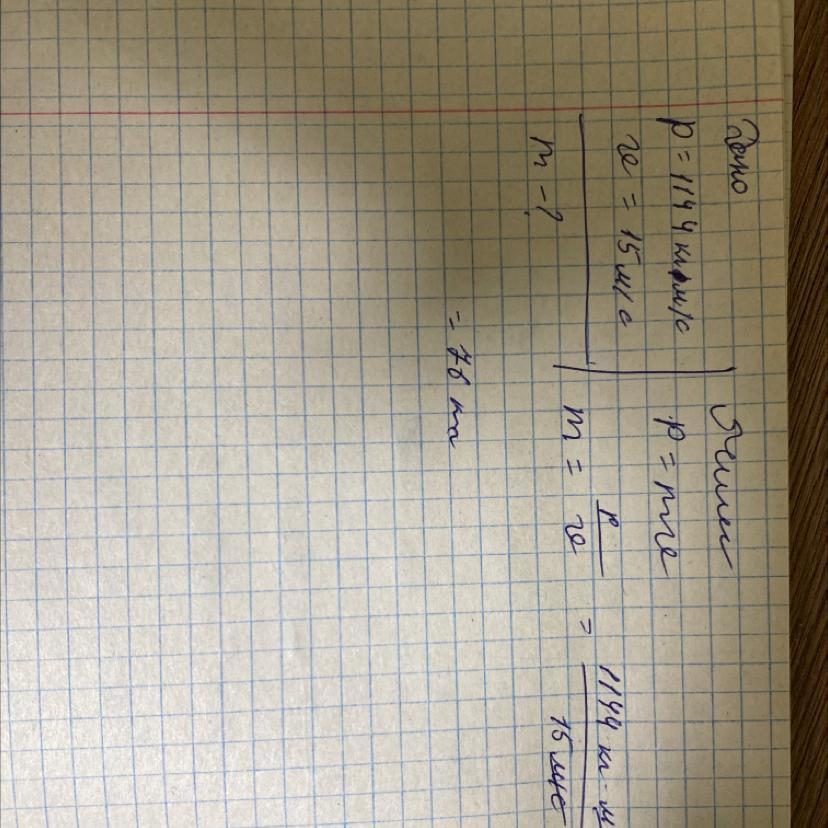 Дано
p = 1144 кг·м/с
v = 15 м/с
m - ?
Решен
p = mv
m = p/v = 1144 кг·м / 15 м/с
= 76 кг